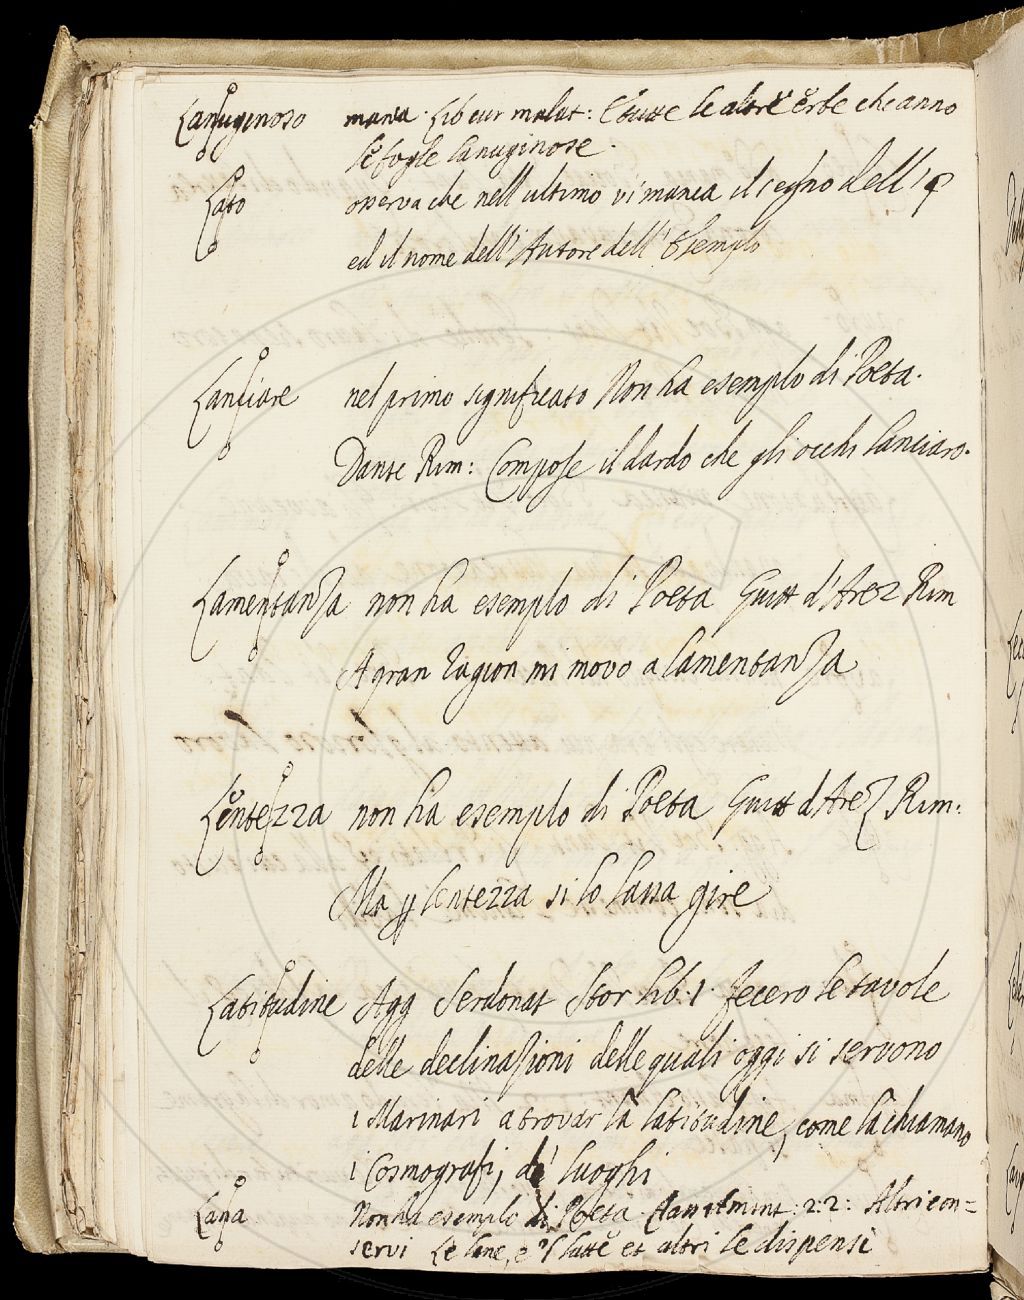 Lanuginoso manca. Lib cur malat: E tutte le altre erbe che anno
le fogle lanuginose.
Lato osserva che nell' ultimo vi manca il segno dell'
ed il nome dell' Autore dell' Esemplo
Lanciare nel primo significato Non ha esemplo di Poeta.
Dante Rim: Compose il dardo che gli occhi lanciaro.
Lamentanza non ha esemplo di Poeta Guitt d'Arez Rim
A gran ragion mi movo a lamentanza
Lentezza non ha esemplo di Poeta Guitt d'Arez Rim:
Ma lentezza si lo lassa gire
Latitudine Agg Serdonat Stor lib. 1. Fecero le tavole
delle declinazioni delle quali oggi si servono
i Marinari a trovar la latitudine, come la chiamano
i Cosmografi, de' luoghi
Lana Non ha esemplo di Poeta. 2: 2: Altri con=
servi Le lane, e 'l latte et altri le dispensi